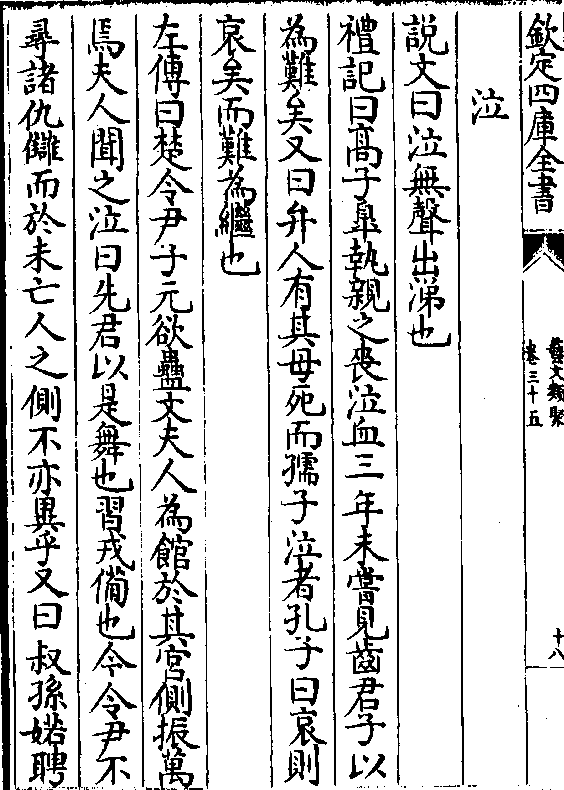 欽定四庫全書
藝文類聚
卷三十五
十八
泣
説文曰泣無聲出涕也
禮記曰高子臯執親之喪泣血三年未嘗見齒君子以
為難矣又曰弁人有其母死而孺子泣者孔子曰哀則
哀矣而難為繼也
左傳曰楚令尹子元欲蠱文夫人為館於其宫側振萬
焉夫人聞之泣曰先君以是舞也習戎備也今令尹不
尋諸仇讎而於未亡人之側不亦異乎又曰叔孫婼聘